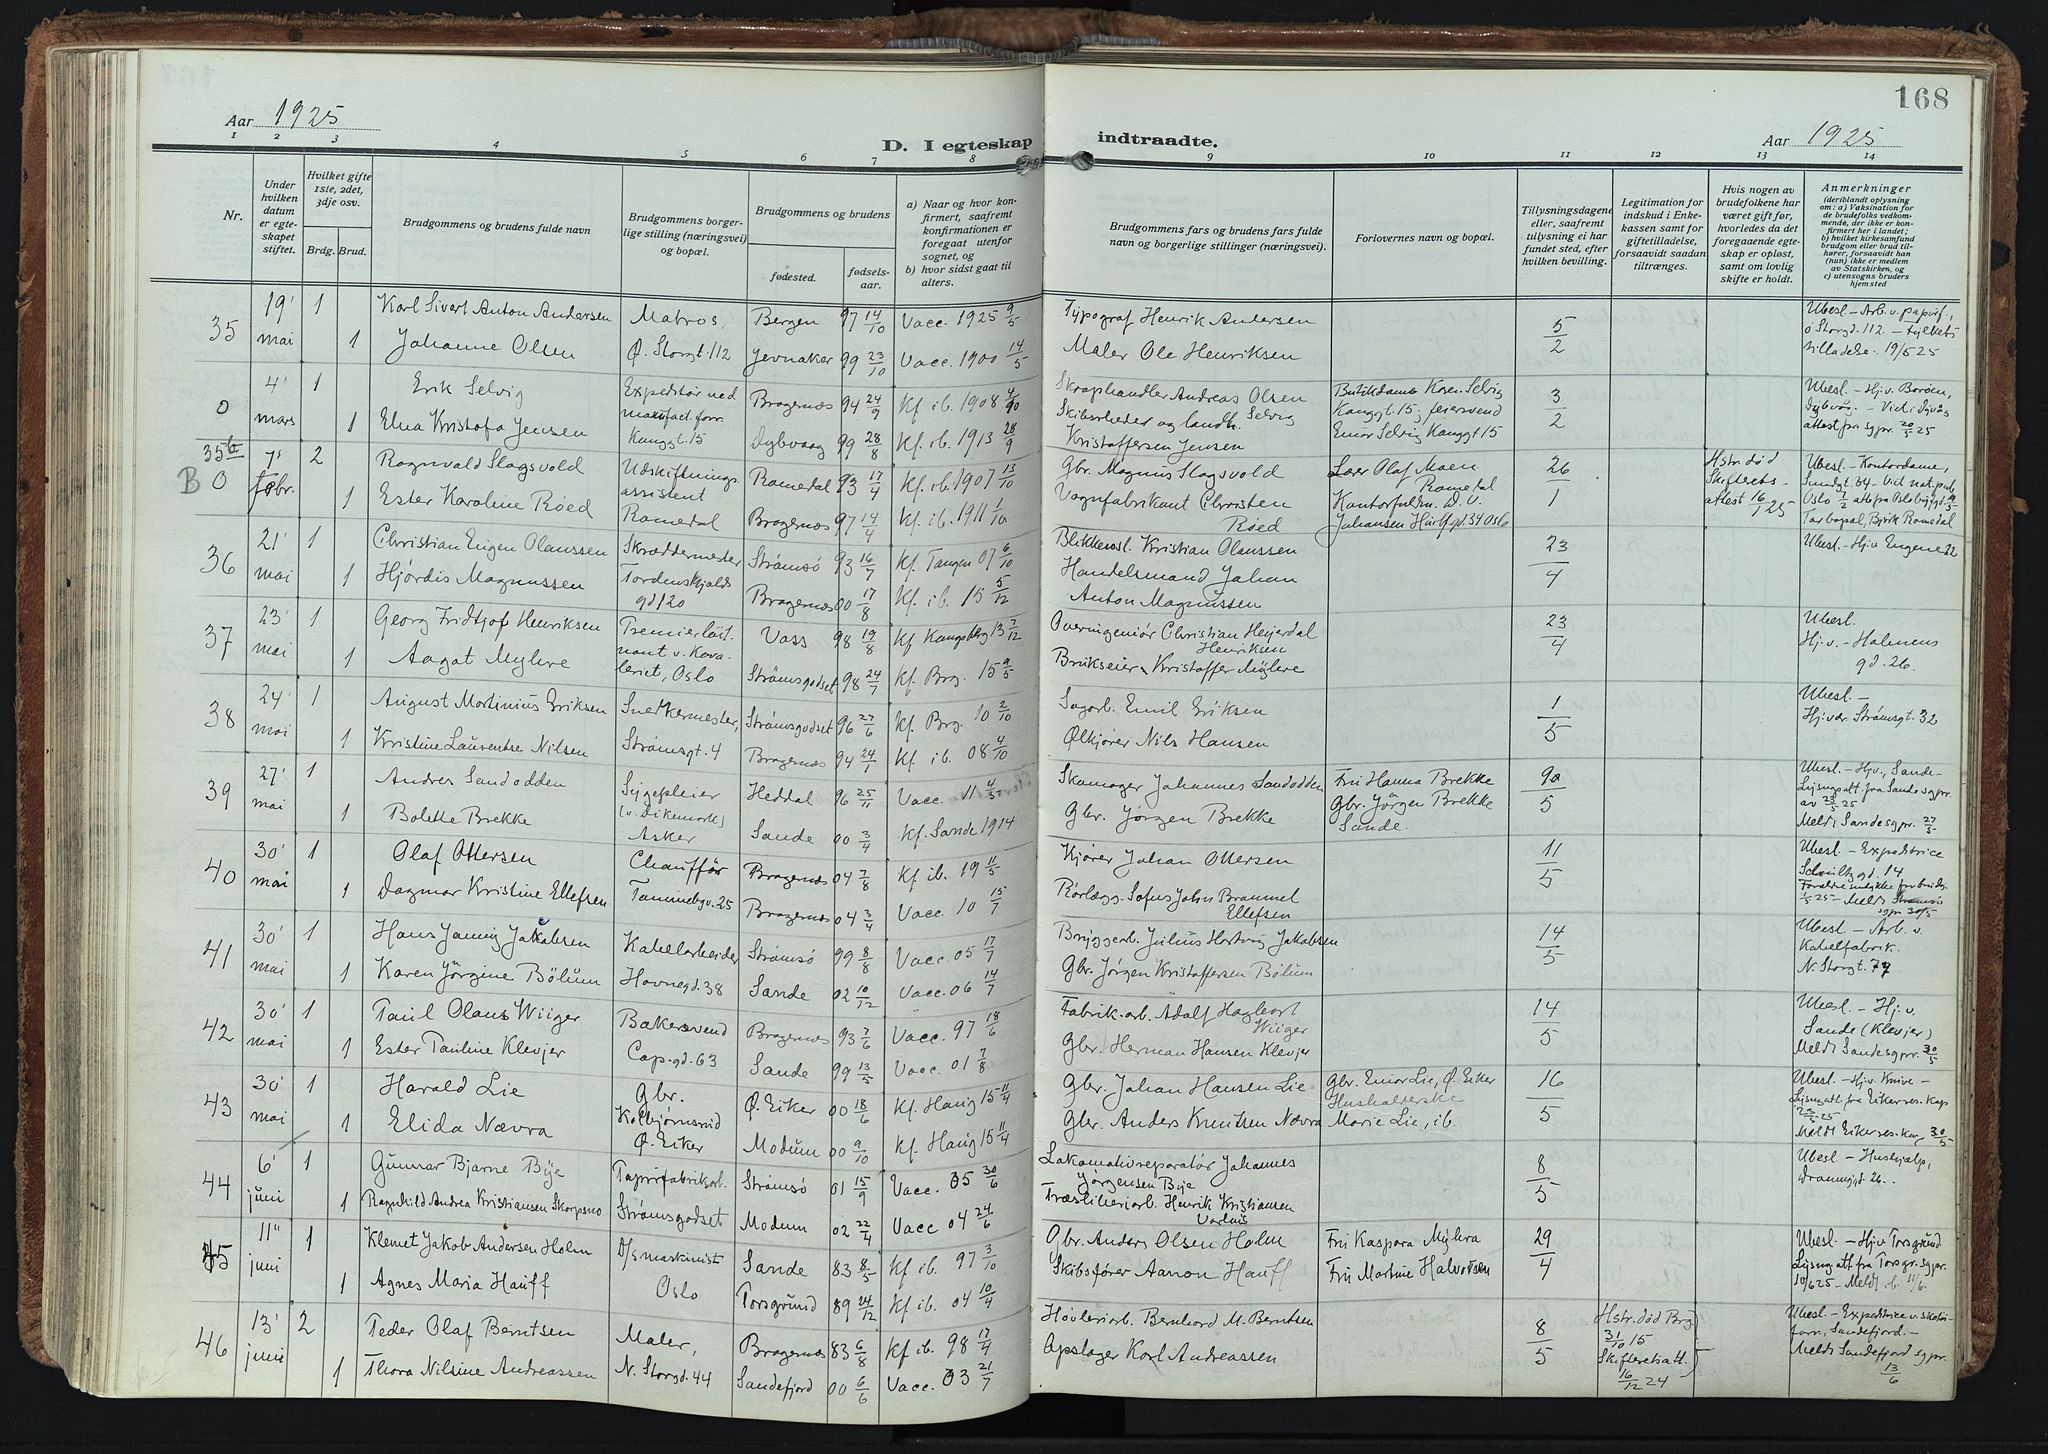 168
Aar 1925
D. I egteskap indtraadte.
Aar 1925
1 2 3 4 5 6 7 8 9 10 11 12 13 14
Nr.
Under hvilken datum er egteskapet stiftet.
Hvilket gifte 1ste, 2det, 3dje osv.
Brdg. Brud.
Brudgommens og brudens fulde navn
Brudgommens borgerlige stilling (næringsvei) og bopæl.
Brudgommens og brudens
fødested.
fødselsaar.
a) Naar og hvor konfirmert, saafremt konfirmationen er foregaat utenfor sognet, og
b) hvor sidst gaat til alters.
Brudgommens fars og brudens fars fulde navn og borgerlige stillinger (næringsvei).
Forlovernes navn og bopæl.
Tillysningsdagene eller, saafremt tillysning ei har fundet sted, efter hvilken bevilling.
Legitimation for indskud i Enkekassen samt for giftetilladelse, forsaavidt saadan tiltrænges.
Hvis nogen av brudefolkene har været gift før, hvorledes da det foregaaende egteskap er opløst, samt om lovlig skifte er holdt.
Anmerkninger
(deriblandt oplysning om: a) Vaksination for de brudefolks vedkommende, der ikke er konfirmert her i landet; b) hvilket kirkesamfund brudgom eller brud tilhører, forsaavidt han (hun) ikke er medlem av Statskirken, og c) utensogns bruders hjemsted
35 19' mai 1 Karl Sivert Anton Andersen Matros, Bergen 97 14/10 Vacc. 1925 9/5 Typograf Henrik Andersen 5/2 Ubesl. – Arb. v. papirf.,
1 Johanne Olsen Ø. Storgt 112 Jevnaker 99 23/10 Vacc. 1900 14/5 Maler Ole Henriksen ø Storgd. 112 – fylkets tilladelse 19/5 25
0 4' mars 1 Erik Selvig Expeditør ved Bragernæs 94 24/9 Kf. ib. 1908 4/10 Skraphandler Andreas Olsen Selvig Kanggt. 15; feiersvend 3/2 Ubesl. – Hj. v. Borøen,
1 Elna Kristofa Jensen manufact. forr. Kanggt. 15 Dybvaag 99 28/8 Kf. ib. 1913 28/9 Skibsrheder og landh. Kristoffersen Jensen Einar Selvig Kanggt 15 Dybvåg. – Viet i Dyvås attest fra sgpr. 20/5 25
35b B 0 7' febr. 2 Ragnvald Slagsvold Utskiftnings- Romedal 93 17/4 Kf. ib. 1907 13/10 Gbr. Magnus Slagsvold Lærer Olaf Moen Romedal 26/1 Hstr. død Skifterets- attest 16/1 25 Ubesl. – Kontordame,
1 Ester Karoline Røed assistent Romedal Bragernæs 97 14/4 Kf. ib. 1911 1/10 Vognfabrikant Christen Røed Kontorfuldm. D. V. Johansen
36 21' mai 1 Christian Eugen Olaussen Skræddermester Strømsø 93 16/7 Kf. Tangen 07 6/10 Blikkensl. Kristian Olaussen 23/4 Ubesl. – Hj. v. Engene 22
1 Hjørdis Magnussen Tordenskjolds gd 120 Bragernæs 00 17/8 Kf. ib. 15 5/12 Handelsmand Johan Anton Magnussen
37 23' mai 1 Georg Fridtjof Henriksen Premierløit- Voss 98 19/8 Kf Kongsberg 13 7/12 Overingeniør Christian Heyerdal Henriksen 23/4 Ubesl.
1 Aagot Myhre nant v. Kava- leriet, Oslo Strømsgodset 98 24/7 Kf. Brg. 15 9/5 Brukseier Kristoffer Myhre Hj. v. – Halmens gd. 26.
38 24' mai 1 August Martinius Eriksen Snedkermester, Strømsgodset 96 27/6 Kf. Brg. 10 2/10 Sagarb. Emil Eriksen 1/5 Ubesl. –
1 Kristine Laurentse Nilsen Strømsgt. 4 Bragernæs 94 24/1 Kf. ib. 08 4/10 Ølkjører Nils Hansen Hj. v. Strømsgt. 32
39 27' mai 1 Andres Sandodden Sygepleier Heddal 96 25/11 Vacc. 11 4/5 Skomager Johannes Sandodden Fru Hanna Brekke 9/5 Ubesl. – Hj. v., Sande –
1 Bolette Brekke (v. Dikemark) Asker Sande 00 3/4 Kf. Sande 1914 Gbr. Jørgen Brekke Gbr. Jørgen Brekke Sande. Lysnga­tt fra Sande sgpr. av 23/5 25 Meldt Sande sgpr. 27/5
40 30' mai 1 Olaf Ottersen Chauffør Bragernæs 04 7/8 Kf ib. 19 11/5 Kjører Johan Ottersen 11/5 Ubesl. – Expeditrice
1 Dagmar Kristine Ellefsen Bragernæs 04 3/4 Vacc. 10 15/7 Rørlægg. Sofus John Brammel Ellefsen Schultzgd. 14
41 30' mai 1 Hans Jannig Jakobsen Kabelarbeider Strømsø 99 8/8 Vacc. 05 17/7 Bryggearb. Julius Hartvig Jakobsen 14/5 Ubesl. – Arb. v.
1 Karen Jørgine Bølum Havnegd. 38 Sande 02 10/12 Vacc. 06 14/7 Gbr. Jørgen Kristoffersen Bølum Kabelfabrik. N. Storgt. 77
42 30' mai 1 Paul Olaus Wiiger Bakersvend Bragernæs 93 7/6 Vacc. 97 18/6 Fabrik.arb. Adolf Hagbart Wiiger 14/5 Ubesl. – Hj. v.
1 Ester Pauline Klevjer Cap. gd. 63 Sande 99 13/5 Vacc. 01 7/8 Gbr. Herman Hansen Klevjer Sande (Klevjer) Meldt Sande sgpr. 30/5
43 30' mai 1 Harald Lie Gbr. Ø. Eiker 00 18/6 Kf. Haug 15 11/4 Gbr. Johan Hansen Lie Gbr. Einar Lie, Ø. Eiker 16/5 Ubesl. – Hj. v. Knive –
1 Elida Nævra Kolbjørnsrud Ø. Eiker Modum 00 9/10 Kf Haug 15 11/4 Gbr. Anders Knutsen Nævra Husholderske Marie Lie, ib. Lysngatt. fra Eiker res. kap 23/5 25 Meldt Eiker res. kap. 30/5
44 6' juni 1 Gunnar Bjarne Bye Papirfabrikarb. Strømsø 01 15/9 Vacc. 05 30/6 Lokomotivreparatør Johannes Jørgensen Bye 8/5 Ubesl. – Hushjælp,
1 Ragnhild Andrea Kristiansen Skarpsno Strømsgodset Modum 02 22/4 Vacc 04 24/6 Træsliberiarb. Henrik Kristiansen Dronninggd 26.
45 11" juni 1 Klemet Jakob Andersen Holm D/s maskinist Sande 83 8/5 Kf ib. 97 3/10 Gbr. Anders Olsen Holm Fru Kaspara Myhra 29/4 Ubesl. – Hj. v Torsgrund
1 Agnes Maria Hauff Oslo Torsgrund 89 24/12 Kf ib. 04 10/4 Skibsfører Aanon Hauff Fru Martine Halvorsen Lysngatt fra Torsgr. sgpr. 10/6 25 – Meldt ib. 11/6.
46 13' juni 2 Peder Olaf Berntsen Maler, Bragernæs 83 6/8 Kf ib. 98 17/4 Høvleriarb. Bernhard M. Berntsen 8/5 Hstr. død Brg 31/10 15 Skifteretsatt. 16/12 24 Ubesl. – Expeditrice v. skotøi-
1 Thora Nilsine Andreassen N. Storgd. 44 Sandefjord 00 6/6 Vacc. 03 21/7 Opslager Karl Andreassen forr., Sandefjord. – Meldt Sandefjord sgpr. 13/6